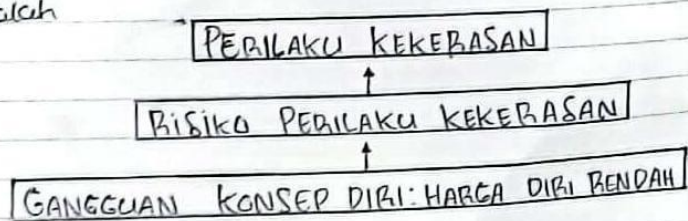 PERILAKU KEKERASAN
RISIKO PERILAKU KEKERASAN
GANGGUAN KONSEP DIRI: HARGA DIRI RENDAH